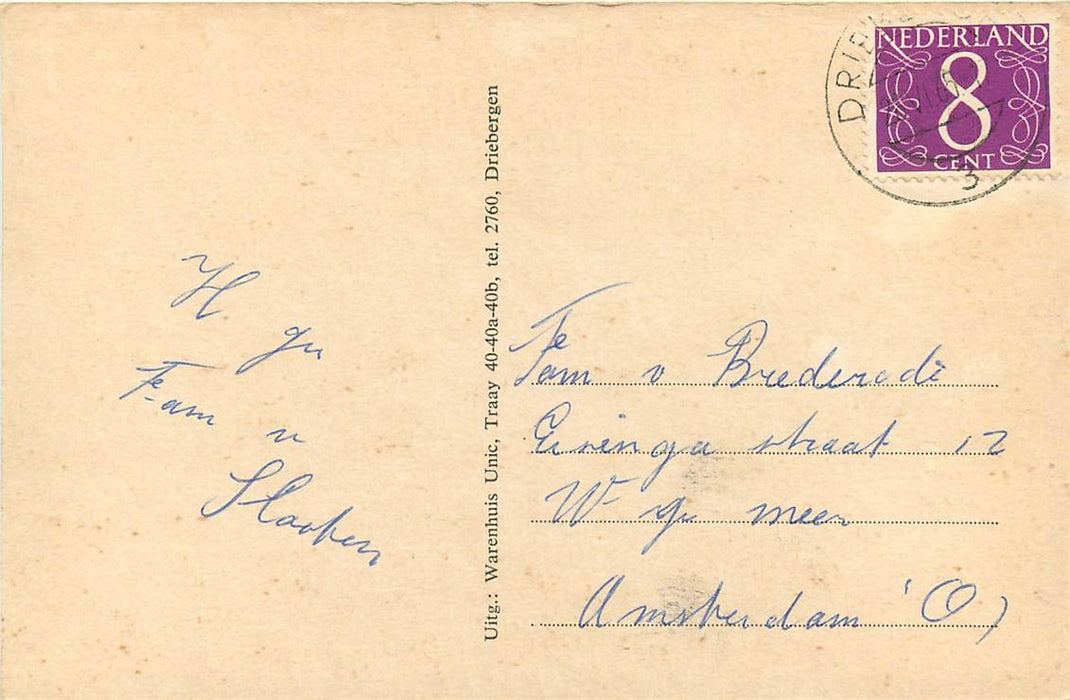 NEDERLAND
8
CENT
DRIEB
3
H gr
Fam v
Slooten
Uitg.: Warenhuis Unic, Traay 40-40a-40b, tel. 2760, Driebergen
Fam v Brederode
straat 12
W gr meer
Amsterdam (O)